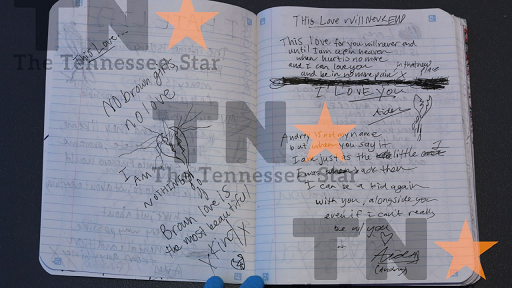 No Love
No brown girls,
no love
I AM
NOTHING
Brown love is
the most beautiful
kind
This Love will Never END
This love for you will never end
until I am up in heaven
when hurt is no more
and I can love you in that quiet place
and be in no more pain
I LOVE YOU
Aiden
name
but when you say it
I am just as the little
I was back then
I can be a kid again
with you, alongside you
even if I can't really
be w/ you
Aiden
(Audrey)
TN
The Tennessee Star
TN
The Tennessee Star
TN